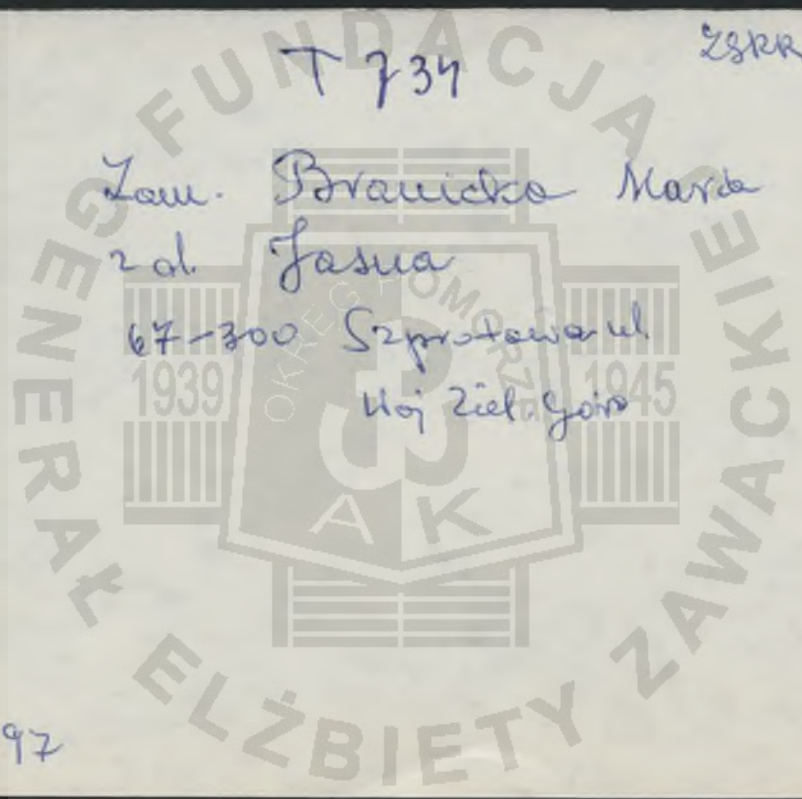 ZSRR
T 734
Zam. Branicka Maria
z d. Jasna
67-300 Szprotawa ul.
Woj Ziel. Góra
97
FUNDACJA GENERAŁ ELŻBIETY ZAWACKIEJ
OKRĘG POMORZE
1939 1945
AK